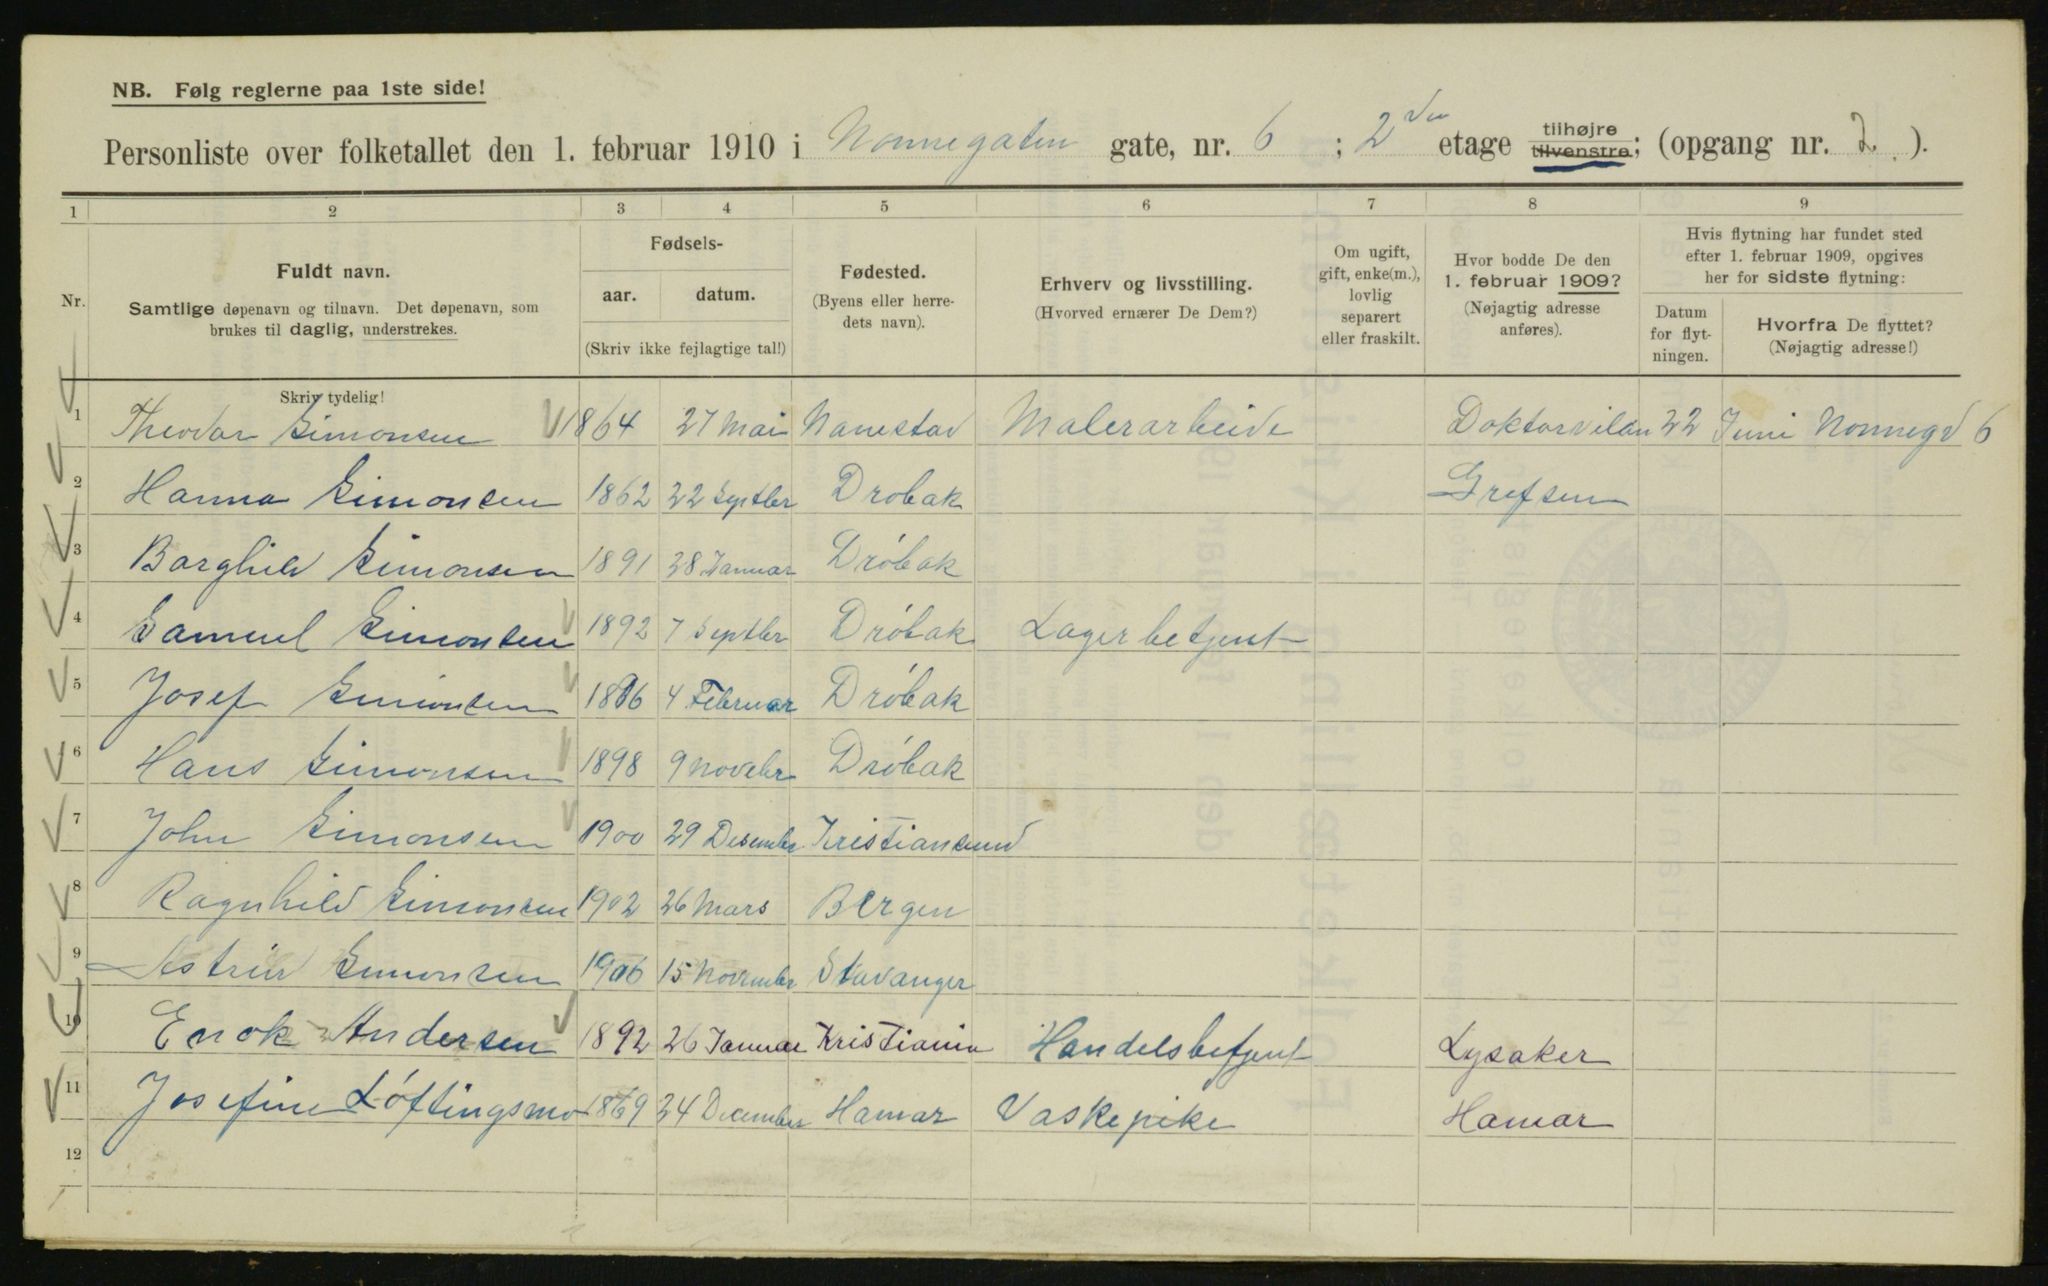 NB. Følg reglerne paa 1ste side!
Personliste over folketallet den 1. februar 1910 i Nonnegaten gate, nr. 6 ; 2den etage tilhøjre tilvenstre; (opgang nr. 2. ).
1 2 3 4 5 6 7 8 9
Nr.
Fuldt navn.
Samtlige døpenavn og tilnavn. Det døpenavn, som
brukes til daglig, understrekes.
Fødsels-
aar. datum.
(Skriv ikke fejlagtige tal!)
Fødested.
(Byens eller herre-
dets navn).
Erhverv og livsstilling.
(Hvorved ernærer De Dem?)
Om ugift,
gift, enke(m.),
lovlig
separert
eller fraskilt.
Hvor bodde De den
1. februar 1909?
(Nøjagtig adresse
anføres).
Hvis flytning har fundet sted
efter 1. februar 1909, opgives
her for sidste flytning:
Datum
for flyt-
ningen.
Hvorfra De flyttet?
(Nøjagtig adresse!)
Skriv tydelig!
1 Theodor Simonsen 1864 27 Mai Nanestad Malerarbeide Doktorvilan 22 Juni Nonnegd 6
2 Hanna Simonsen 1862 22 Septbr Drobak Grefsen
3 Borghild Simonsen 1891 28 Januar Dróbak
4 Samuel Simonsen 1892 7 Septbr Dróbak Lagerbetjent
5 Josef Simonsen 1896 4 Februar Dróbak
6 Hans Simonsen 1898 9 Novebr Dróbak
7 John Simonsen 1900 29 Desember Kristiansund
8 Ragnhild Simonsen 1902 26 Mars Bergen
9 Astrid Simonsen 1906 15 November Stavanger
10 Enok Andersen 1892 26 Januar Kristiania Handelsbetjent Lysaker
11 Josefine Lóftingsmo 1869 24 December Hamar Vaskepike Hamar
12